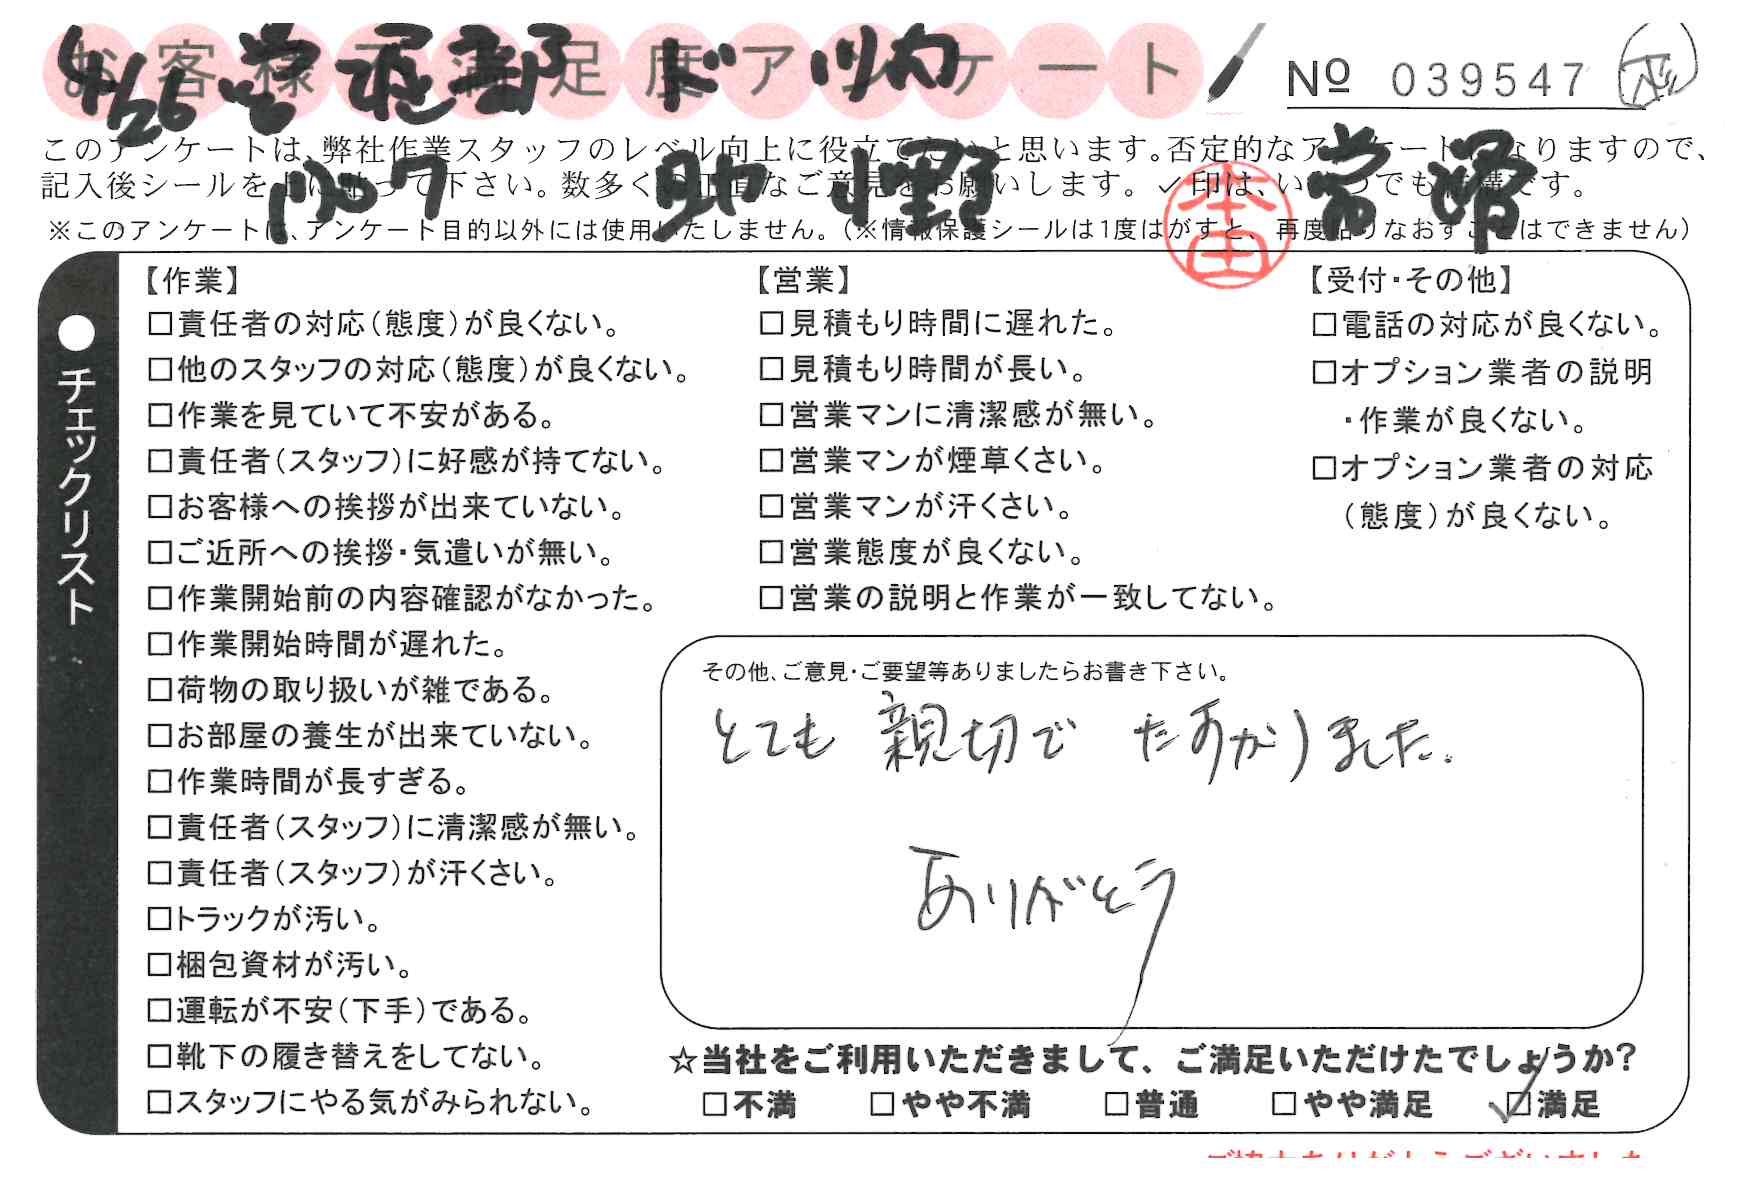 お客様ご満足度アンケート
4/26 営 ド 川内
№ 039547
このアンケートは、弊社作業スタッフのレベル向上に役立てたいと思います。否定的なアンケートになりますので、
記入後シールを上に貼って下さい。数多くの正直なご意見をお願いします。✓印は、いくつでも結構です。
助
本田
※このアンケートは、アンケート目的以外には使用いたしません。(※情報保護シールは1度はがすと、再度貼りなおすことはできません)
●チェックリスト
【作業】
□責任者の対応(態度)が良くない。
□他のスタッフの対応(態度)が良くない。
□作業を見ていて不安がある。
□責任者(スタッフ)に好感が持てない。
□お客様への挨拶が出来ていない。
□ご近所への挨拶・気遣いが無い。
□作業開始前の内容確認がなかった。
□作業開始時間が遅れた。
□荷物の取り扱いが雑である。
□お部屋の養生が出来ていない。
□作業時間が長すぎる。
□責任者(スタッフ)に清潔感が無い。
□責任者(スタッフ)が汗くさい。
□トラックが汚い。
□梱包資材が汚い。
□運転が不安(下手)である。
□靴下の履き替えをしてない。
□スタッフにやる気がみられない。
【営業】
□見積もり時間に遅れた。
□見積もり時間が長い。
□営業マンに清潔感が無い。
□営業マンが煙草くさい。
□営業マンが汗くさい。
□営業態度が良くない。
□営業の説明と作業が一致してない。
【受付・その他】
□電話の対応が良くない。
□オプション業者の説明
・作業が良くない。
□オプション業者の対応
(態度)が良くない。
その他、ご意見・ご要望等ありましたらお書き下さい。
とても 親切で たすかりました.
ありがとう
☆当社をご利用いただきまして、ご満足いただけたでしょうか?
□不満 □やや不満 □普通 □やや満足 ☑満足
ご協力ありがとうございました